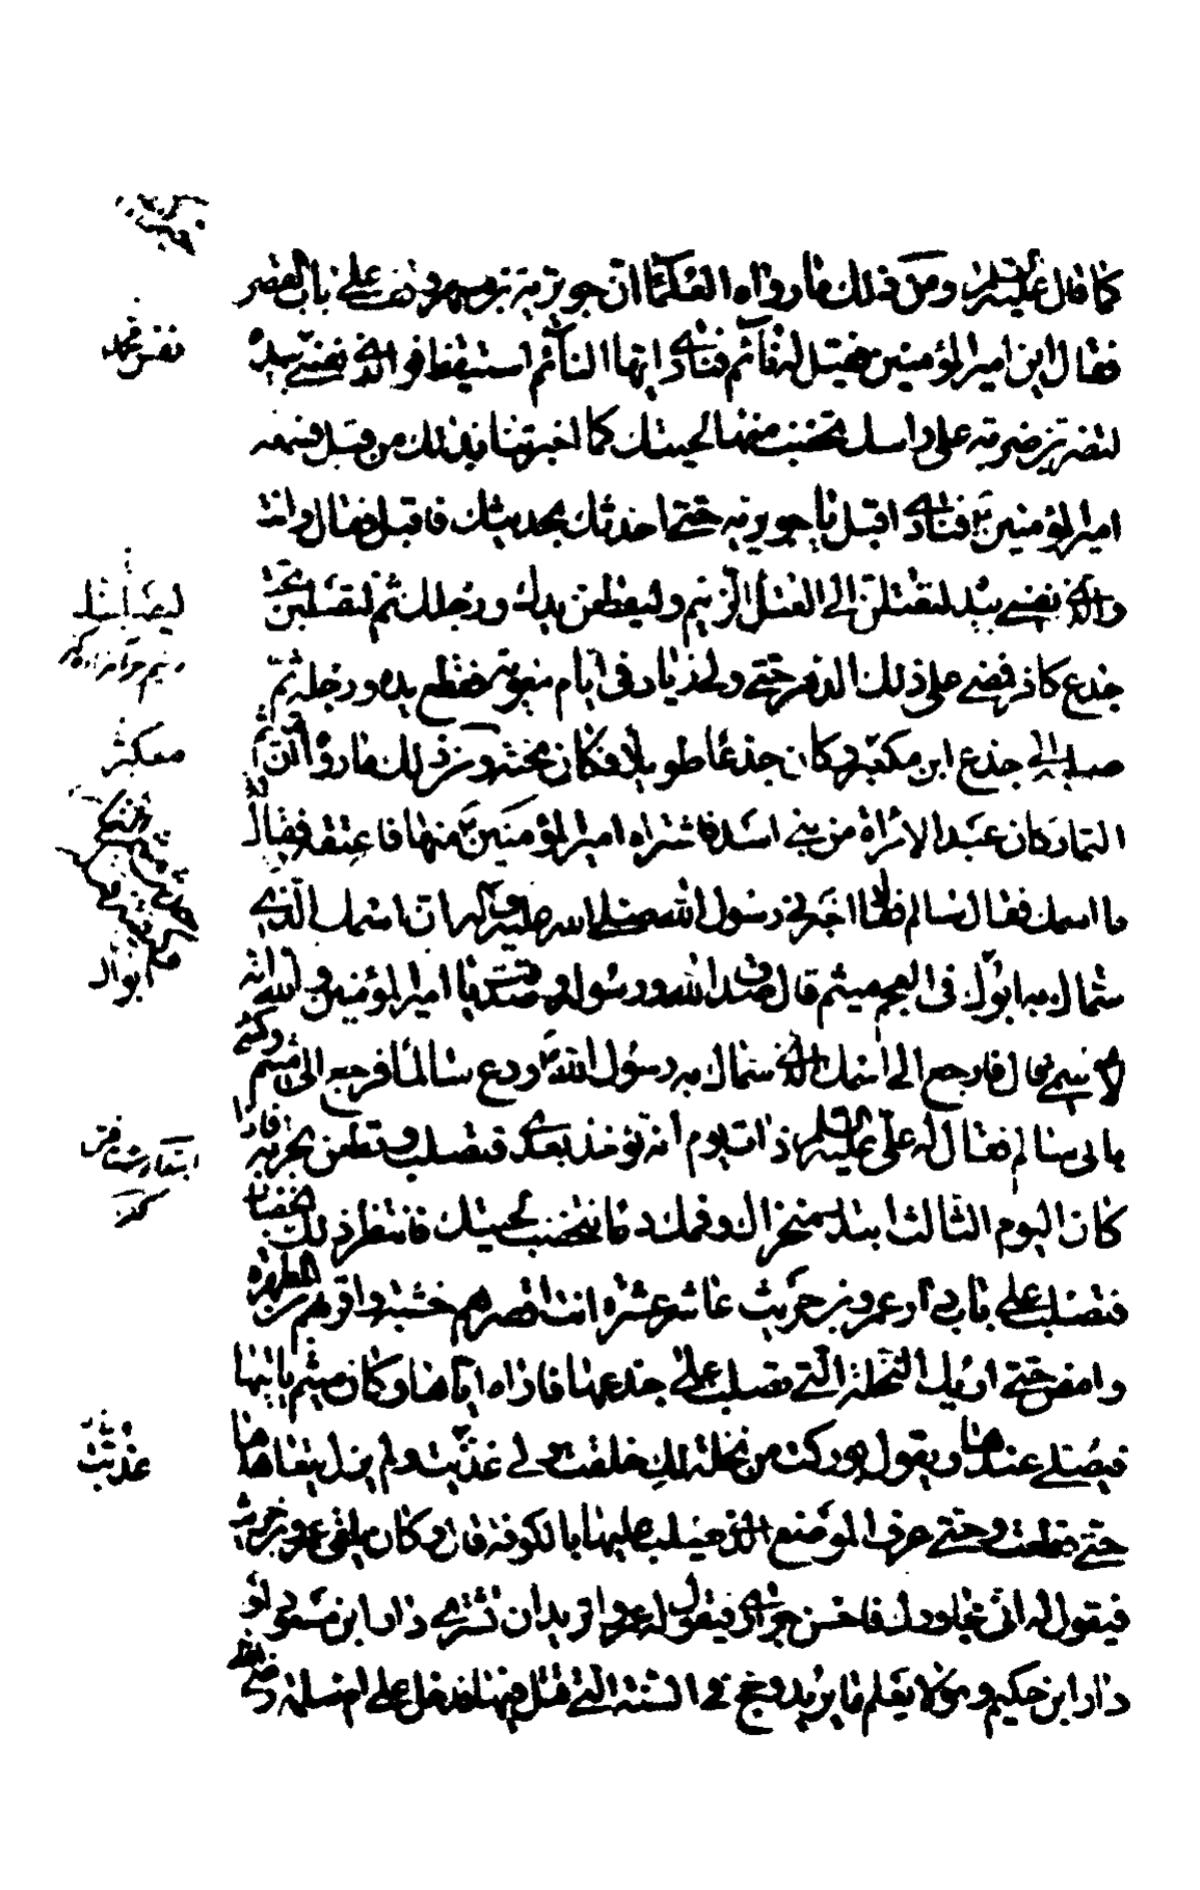 كما قال عليه السلام ومن ذلك ما رواه العلماء ان جويرية بن مسهر وقف على باب القصر
فقال اين امير المؤمنين فقيل له نائم فنادى ايها النائم استيقظ فوالذي نفسي بيده
لتضربن ضربة على راسك تخضب منها لحيتك كما اخبرتنا بذلك من قبل فسمعه
امير المؤمنين فنادى اقبل يا جويرية حتى احدثك بحديثك فاقبل فقال وانت
والذي نفسي بيده لتقتلن الى العتل الزنيم وليقطعن يدك ورجلك ثم لتصلبن تحت
جذع كافر فمضى على ذلك الدهر حتى ولي زياد في ايام معوية فقطع يده ورجله ثم
صلبه الى جذع ابن مكعبر وكان جذعا طويلا فكان تحته ومن ذلك ما رووا ان ميثم
التمار كان عبدا لامراة من بني اسد فاشتراه امير المؤمنين منها فاعتقه فقال له
ما اسمك فقال سالم فقال اخبرني رسول الله صلى الله عليه وآله ان اسمك الذي
سماك به ابواك في العجم ميثم قال صدق الله ورسوله وصدقت يا امير المؤمنين والله انه
لاسمي قال فارجع الى اسمك الذي سماك به رسول الله ودع سالما فرجع الى ميثم وكني
بابي سالم فقال له علي عليه السلام ذات يوم انه تؤخذ بعدي فتصلب وتطعن بحربة فاذا
كان اليوم الثالث ابتدر منخراك وفمك دما تخضب لحيتك فانتظر ذلك الخضاب
فتصلب على باب دار عمرو بن حريث عاشر عشرة انت اقصرهم خشبة واقربهم من المطهرة
وامض حتى اريك النخلة التي تصلب على جذعها فاراه اياها وكان ميثم ياتيها
فيصلي عندها ويقول بوركت من نخلة لك خلقت ولي غذيت ولم يزل يتعاهدها
حتى قطعت وحتى عرف الموضع الذي يصلب عليها بالكوفة قال وكان يلقى عمرو بن حريث
فيقول له اني مجاورك فاحسن جواري فيقول له عمرو اتريد ان تشتري دار ابن مسعود او
دار ابن حكيم وهو لا يعلم ما يريد وحج في السنة التي قتل فيها فدخل على ام سلمة رضي الله
نفس محمد
معكبر
ابواك
غذيت